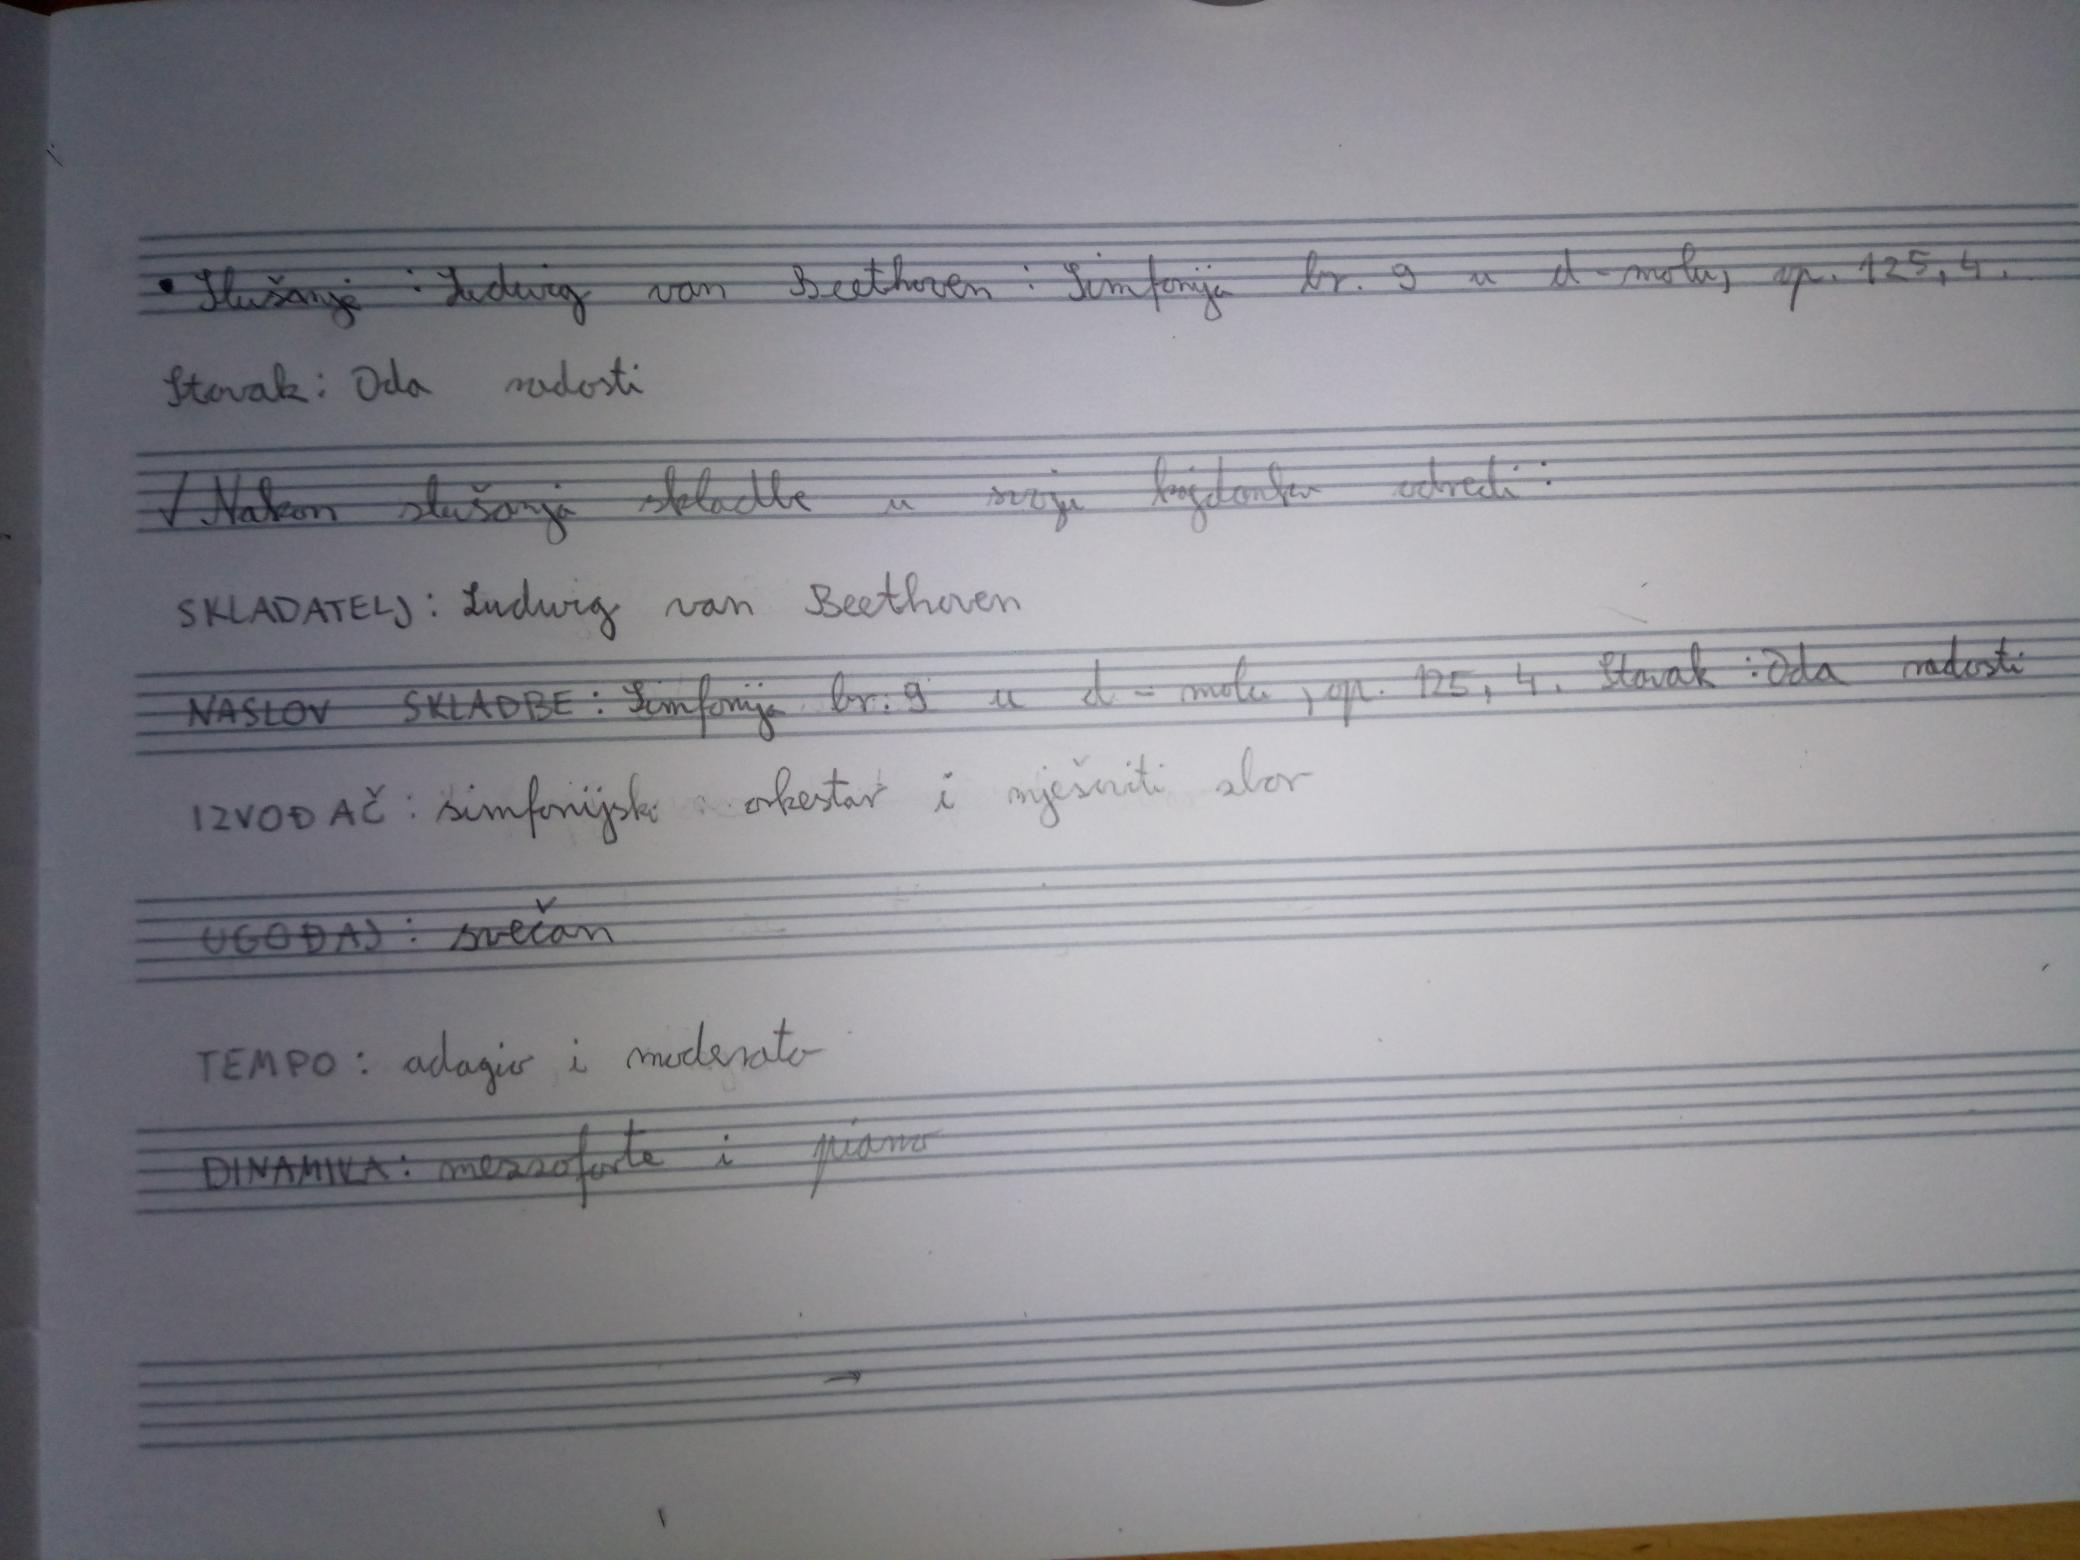 • Slušanje : Ludwig van Beethoven : Simfonija br. 9 u d-molu, op. 125, 4.
Stavak : Oda radosti
√ Nakon slušanja skladbe u svoju kajdanku odredi :
SKLADATELJ : Ludwig van Beethoven
NASLOV SKLADBE : Simfonija br. 9 u d-molu, op. 125, 4. Stavak : Oda radosti
IZVOĐAČ : simfonijski orkestar i mješoviti zbor
UGOĐAJ : svečan
TEMPO : adagio i moderato
DINAMIKA : mezzoforte i piano
→